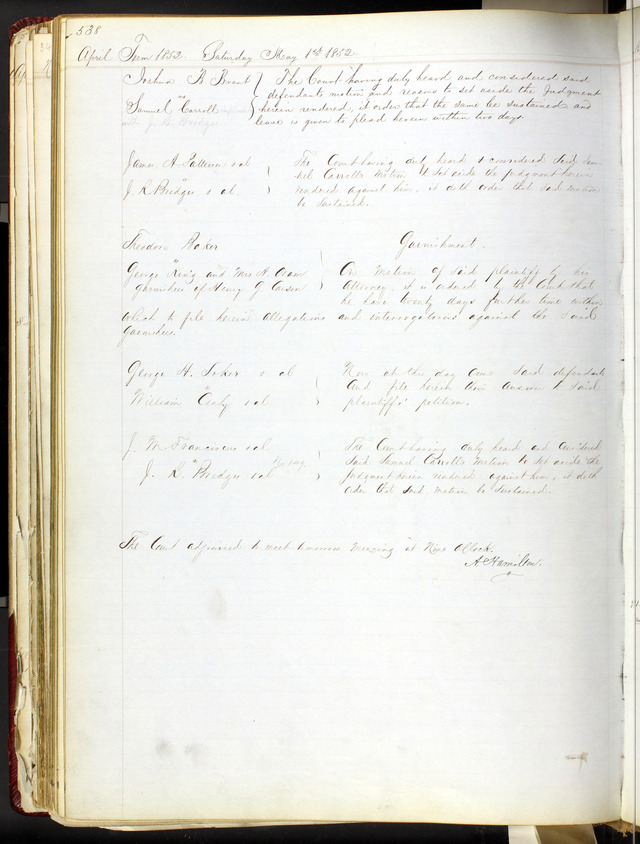 538
April Term 1852. Saturday May 1st 1852
Joshua B Brant } The Court having duly heard and considered said
vs defendants motion and reasons to set aside the Judgment
Samuel Carroll herein rendered, it order that the same be sustained and
with J. R. Bridges leave is given to plead herein within two days.
James A. Patterson et al The Court having duly heard & considered Said Sam-
vs uel Carrolls Motion to set aside the judgment herein
J. R. Bridges et al. rendered against him, it doth order that said motion
be sustained.
Theodore Baker Garnishment.
vs
George and Wm. H. On Motion of said plaintiff by his
garnishees of Henry G. Attorney, it is ordered by the Court that
he have twenty days further time within
which to file herein allegations and interrogatories against the said
Garnishees.
George H. et al Now at this day come Said defendants
vs And file herein their answer to said
William et al plaintiffs' petition.
J. M. Franciscus et al The Court having duly heard and considered
vs Said Samuel Carrolls Motion to set aside the
J. R. Bridges et al judgment herein rendered against him, it doth
order that said motion be sustained.
The Court adjourned to meet tomorrow morning at Nine OClock.
A. Hamilton.